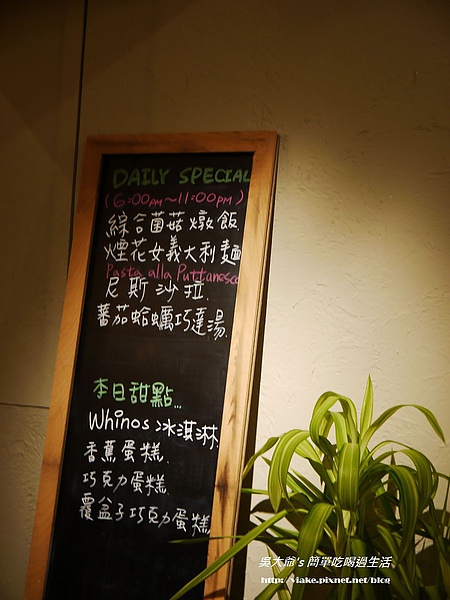 DAILY SPECIAL
(6:00PM~11:00PM)
綜合菌菇燉飯
煙花女義大利麵
Pasta alla Puttanesca
尼斯沙拉
蕃茄蛤蠣巧達湯
本日甜點...
Whinos 冰淇淋
香蕉蛋糕
巧克力蛋糕
覆盆子巧克力蛋糕
吳大爺's 簡單吃喝過生活
http://viake.pixnet.net/blog